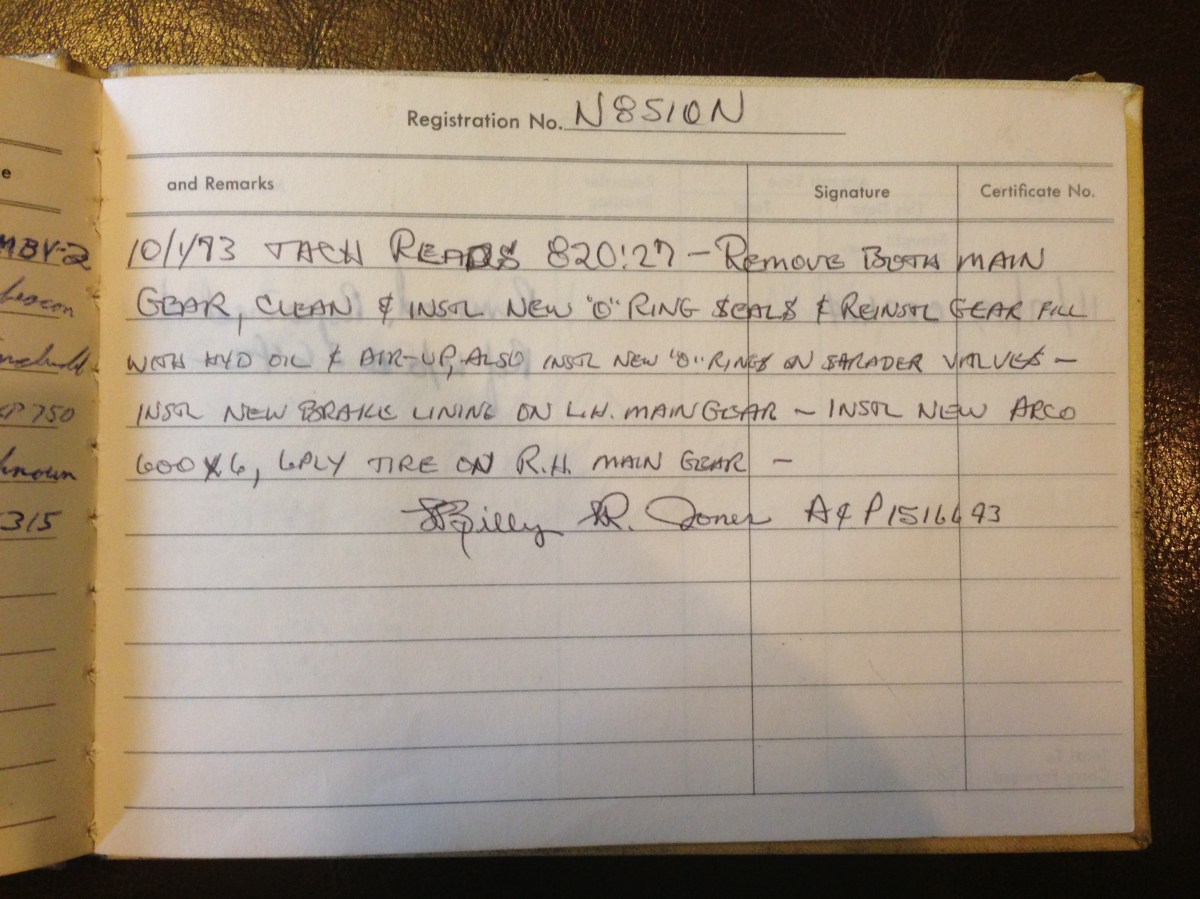 Registration No. N8510N
e
and Remarks Signature Certificate No.
MBV-2
10/1/73 TACH READS 820:27 - REMOVE BOTH MAIN
beacon
GEAR, CLEAN & INSTL NEW "O" RING SEALS & REINSTL GEAR FILL
WITH HYD OIL & AIR-UP, ALSO INSTL NEW "O" RINGS ON SHRADER VALVES -
P 750
INSTL NEW BRAKE LINING ON L.H. MAIN GEAR - INSTL NEW ARCO
known
600X6, 6PLY TIRE ON R.H. MAIN GEAR -
315
Billy R. Jones A&P 1516693